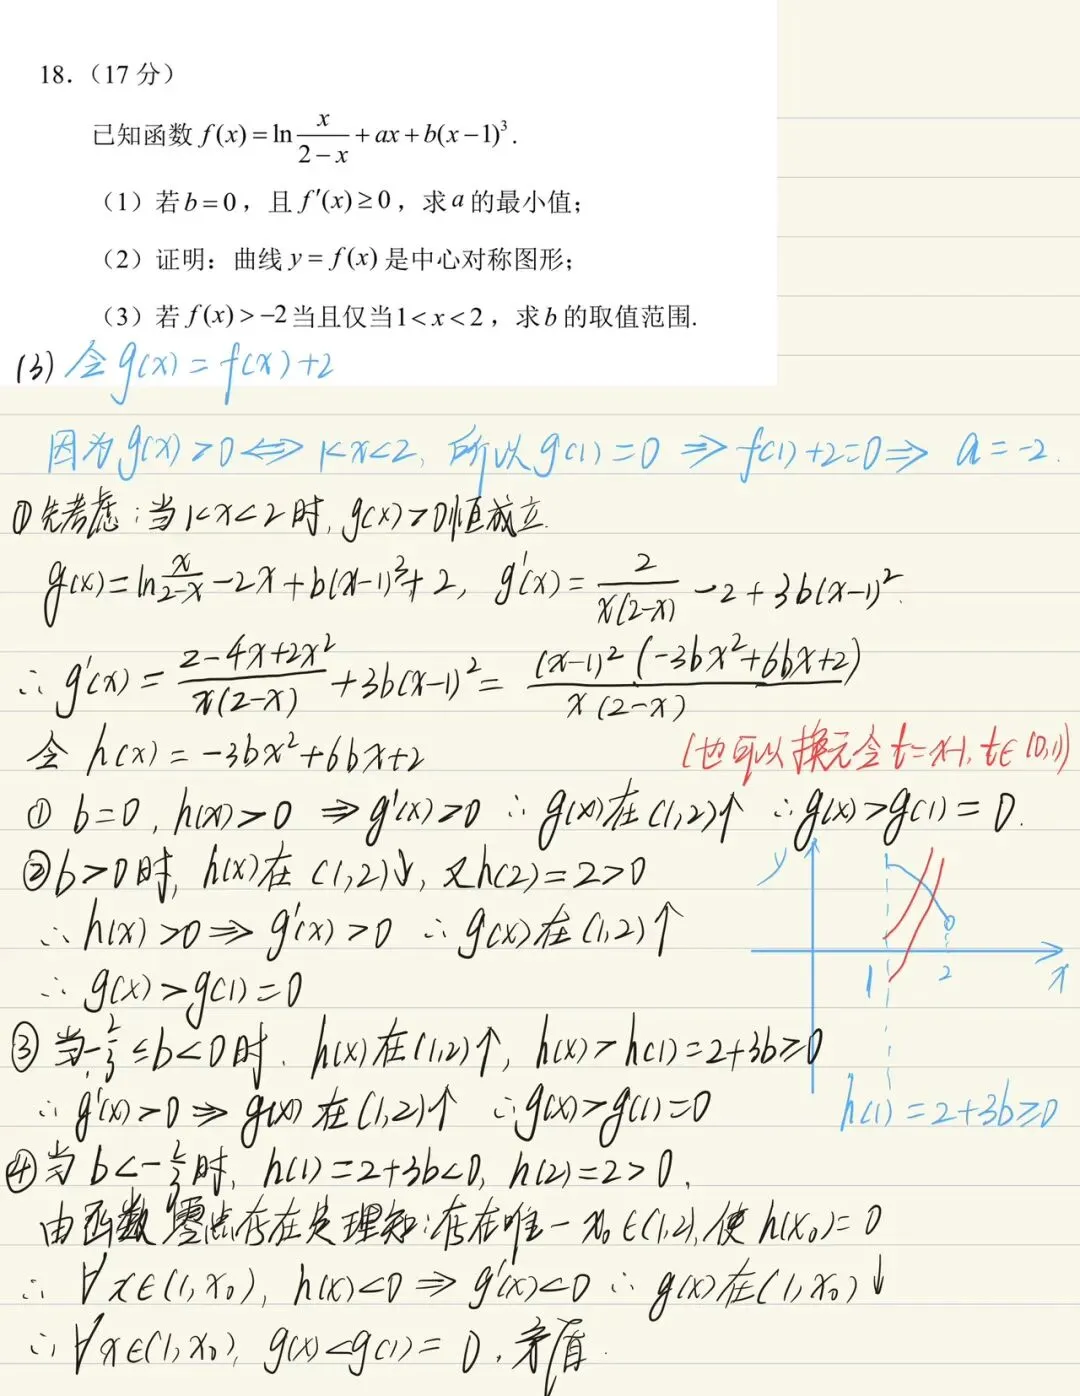 18.（17 分）
已知函数 f(x) = ln x/(2−x) + ax + b(x−1)³.
（1）若 b = 0，且 f′(x) ≥ 0，求 a 的最小值；
（2）证明：曲线 y = f(x) 是中心对称图形；
（3）若 f(x) > −2 当且仅当 1 < x < 2，求 b 的取值范围.
(3) 令 g(x) = f(x)+2
因为 g(x)>0 ⇔ 1<x<2, 所以 g(1)=0 ⇒ f(1)+2=0 ⇒ a=-2.
① 先考虑：当 1<x<2 时, g(x)>0 恒成立.
g(x) = ln x/(2-x) -2x+b(x-1)³+2, g'(x) = 2/(x(2-x)) -2+3b(x-1)².
∴ g'(x) = (2-4x+2x²)/(x(2-x)) +3b(x-1)² = (x-1)²(-3bx²+6bx+2)/(x(2-x))
令 h(x) = -3bx²+6bx+2
(也可以换元令 t=x-1, t∈(0,1))
① b=0, h(x)>0 ⇒ g'(x)>0 ∴ g(x)在(1,2)↑ ∴ g(x)>g(1)=0.
② b>0时, h(x)在(1,2)↓, 又h(2)=2>0
∴ h(x)>0 ⇒ g'(x)>0 ∴ g(x)在(1,2)↑
∴ g(x)>g(1)=0
y
1
2
x
③ 当-2/3≤b<0时. h(x)在(1,2)↑, h(x)>h(1)=2+3b≥0
∴ g'(x)>0 ⇒ g(x)在(1,2)↑ ∴ g(x)>g(1)=0
h(1)=2+3b≥0
④ 当 b<-2/3时, h(1)=2+3b<0, h(2)=2>0.
由函数零点存在定理知：存在唯一 x₀∈(1,2), 使 h(x₀)=0
∴ ∀x∈(1,x₀), h(x)<0 ⇒ g'(x)<0 ∴ g(x)在(1,x₀)↓
∴ ∀x∈(1,x₀), g(x)<g(1)=0, 矛盾.